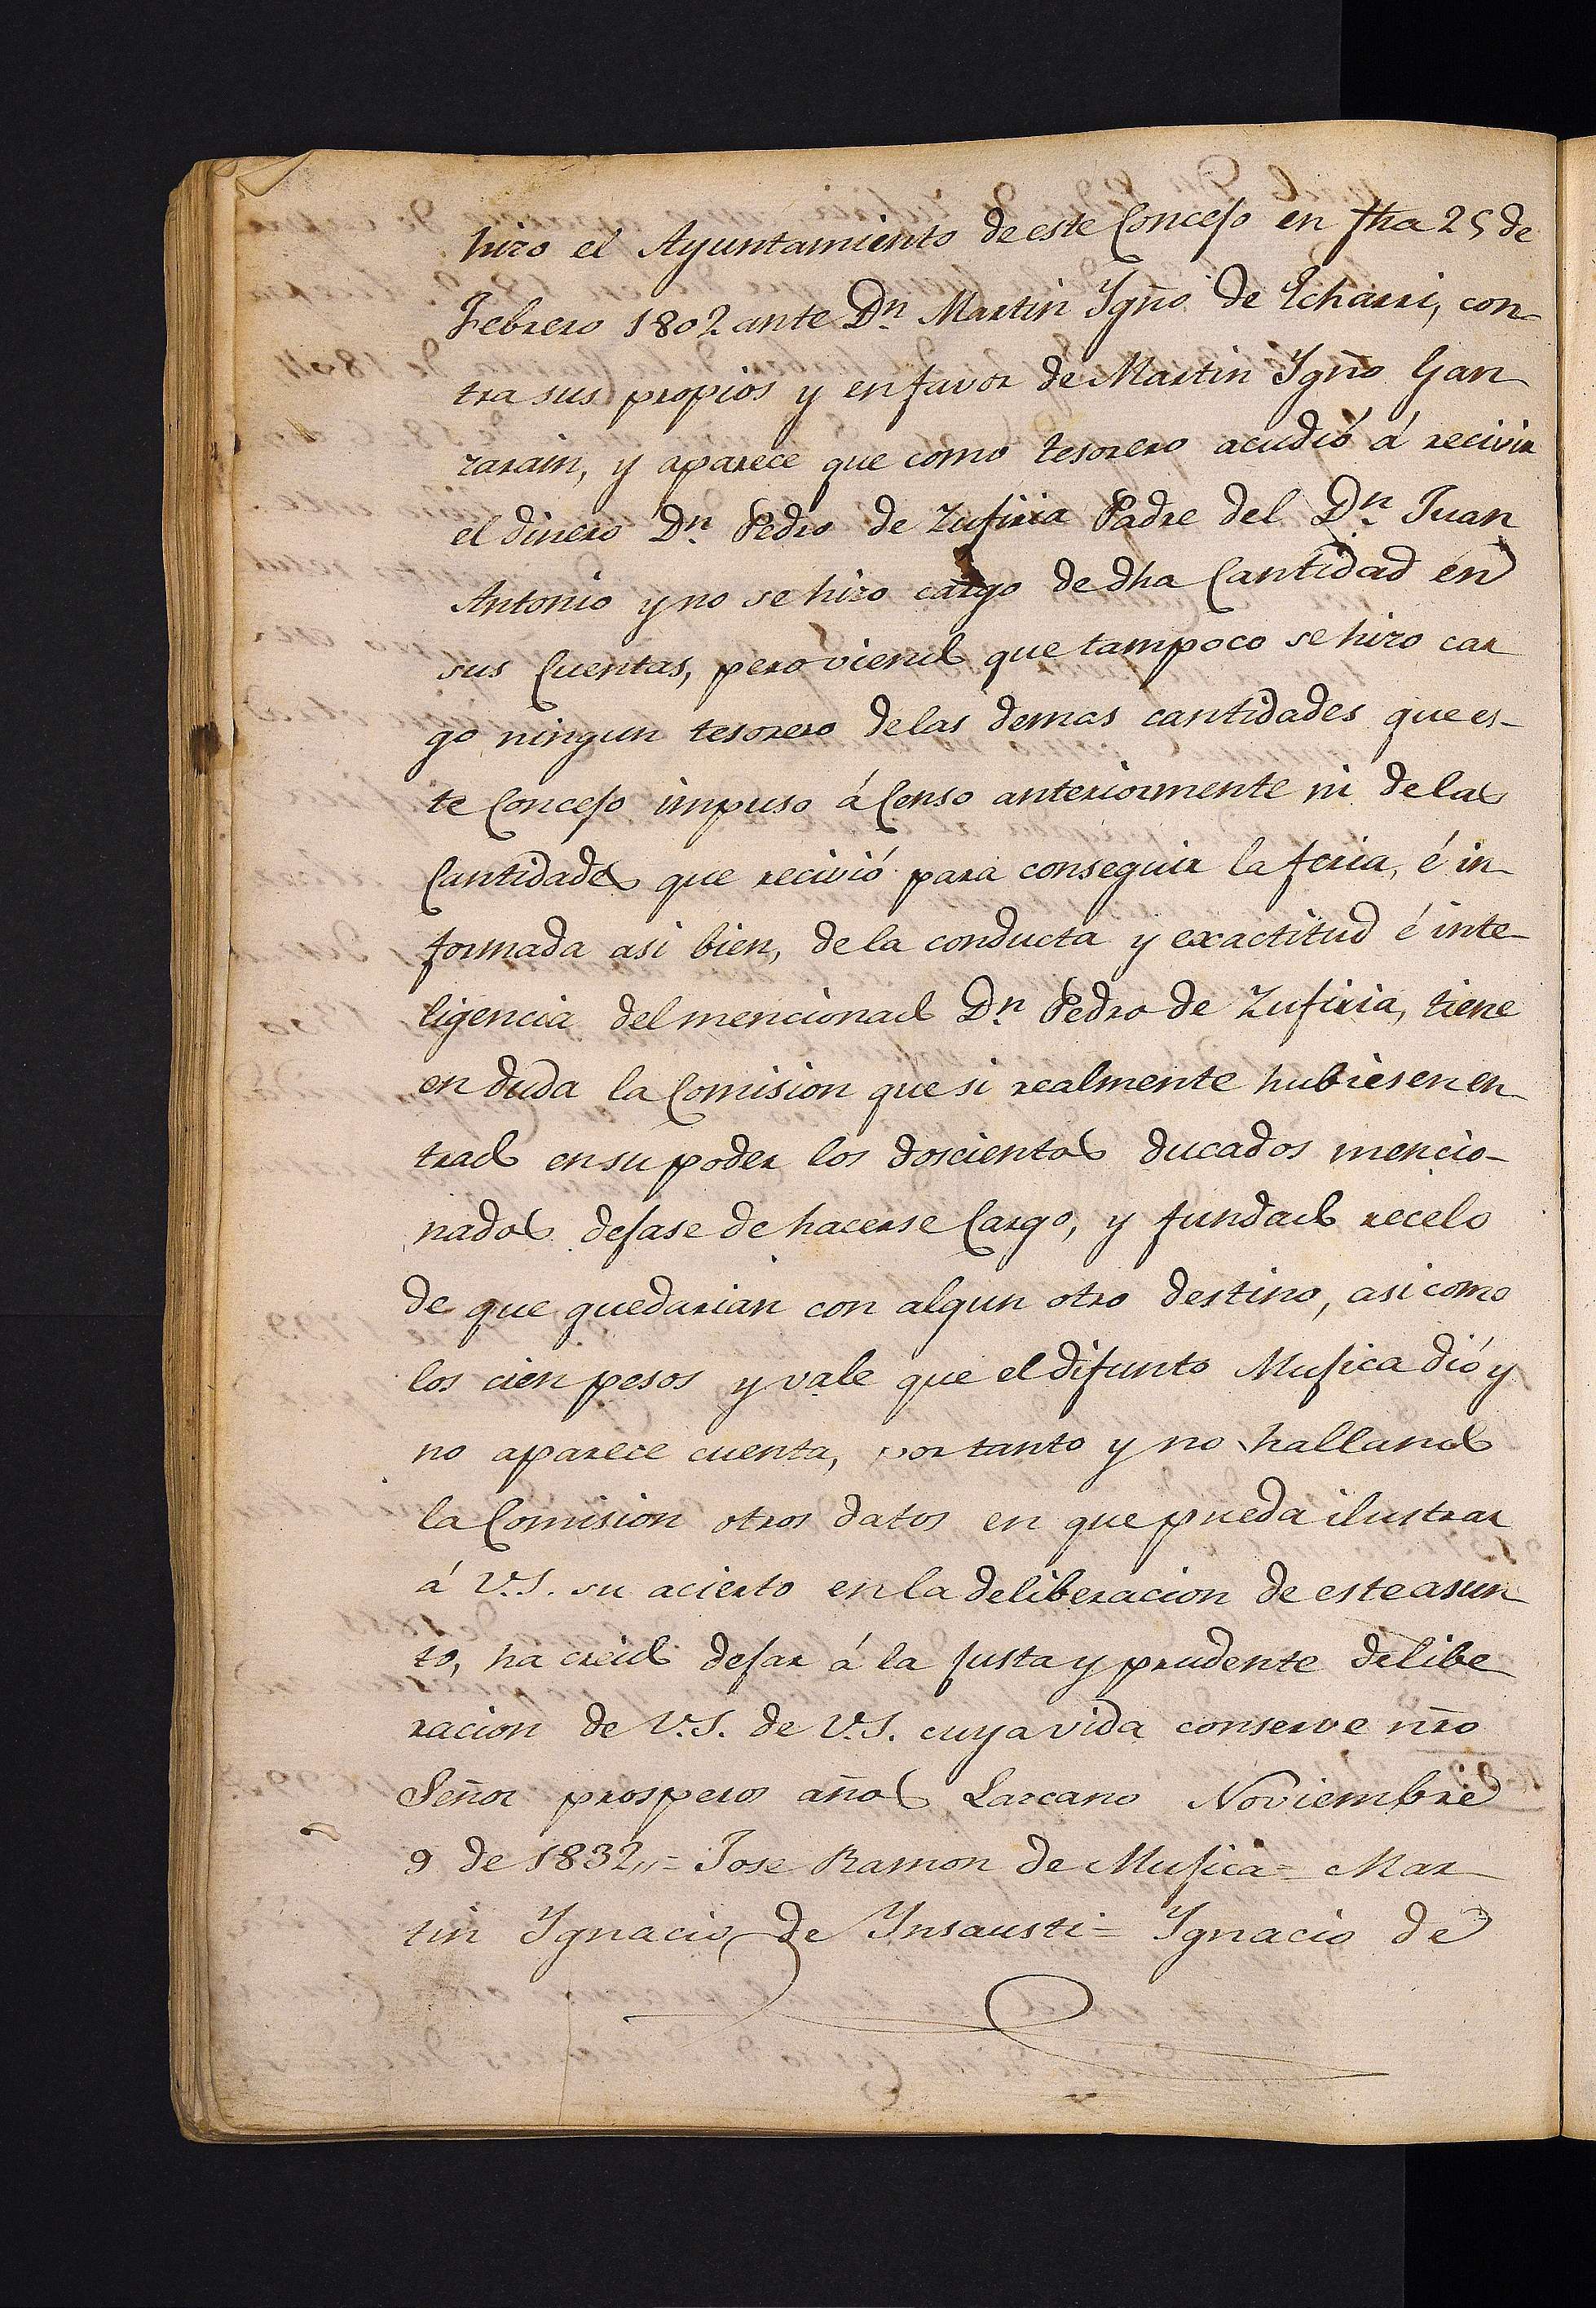 hizo el Ayuntamiento de este Concejo en fha 25 de
Febrero 1802 ante Dn. Martin Ygño de Echarri, con-
tra sus propios y en favor de Martin Ygño Gan
zarain, y aparece que como tesorero acudió á recivir
el dinero Dn. Pedro de Zufiria Padre del Dn. Juan
Antonio y no se hizo cargo de dha Cantidad en
sus Cuentas, pero viendo que tampoco se hizo car
go ningun tesorero de las demas cantidades que es-
te Concejo impuso á Censo anteriormente ni de las
Cantidades que recivió para conseguir la feria, é in-
formada asi bien, de la conducta y exactitud é inte-
ligencia del mencionado Dn. Pedro de Zufiria, tiene
en duda la Comision que si realmente hubiesen en
trado en su poder los doscientos ducados mencio-
nados dejase de hacerse Cargo, y fundado recelo
de que quedarian con algun otro destino, asi como
los cien pesos y vale que el difunto Mujica dió y
no aparece cuenta, por tanto y no hallando
la Comision otros datos en que pueda ilustrar
á V.S. su acierto en la deliberacion de este asun
to, ha creido dejar á la justa y prudente delibe
racion de V.S. de V.S. cuya vida conserve nro
Señor prosperos años Lazcano Noviembre
9 de 1832,,= Jose Ramon de Mujica= Mar
tin Ygnacio de Ynsausti= Ygnacio de